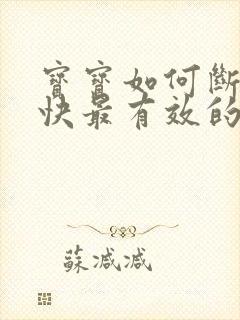 寶寶如何斷
快最有效的
蘇減減